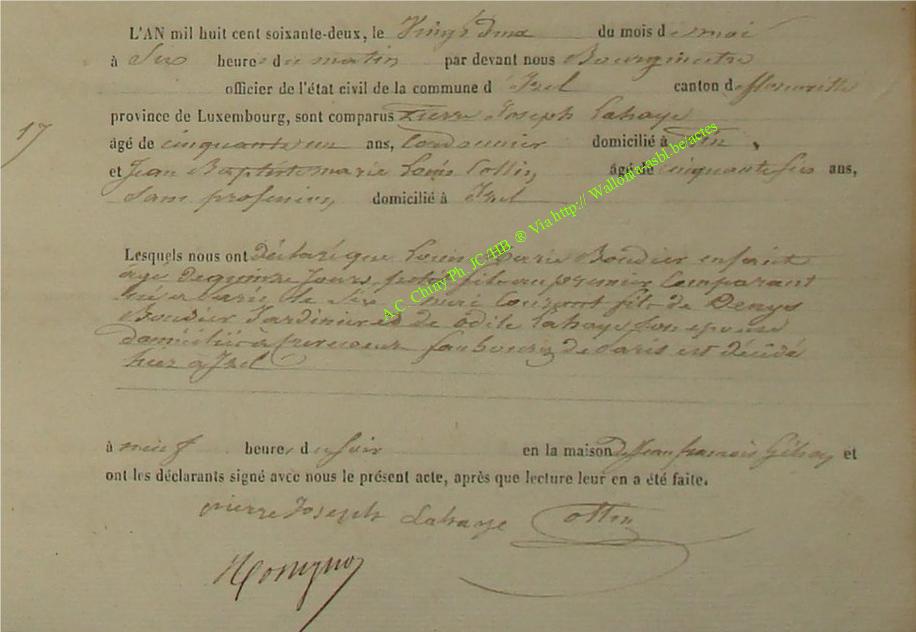 L'AN mil huit cent soixante-deux, le Vingt deux du mois de mai
à Six heures du matin par devant nous Bourgmestre
officier de l'état civil de la commune d'Izel canton de Florenville
17
province de Luxembourg, sont comparus Pierre Joseph Lahaye
âgé de cinquante un ans, Cordonnier domicilié à
et Jean Baptiste marie Louis Collin, âgé de Cinquante Six ans,
Sans profession, domicilié à Izel
A.C. Chiny Ph. JC/HB ® Via http:// Wallonia.asbl.be/actes
Lesquels nous ont déclaré que Louis Marie Boudier enfant
âgé de quinze Jours, petit fils au premier Comparant
né à Paris le Six mai Courant fils de Denys
Boudier Jardinier et de Odile Lahaye Son épouse
domiciliés à faubourg de Paris est décédé
hier à Izel
à neuf heures du soir en la maison de Jean francois et
ont les déclarants signé avec nous le présent acte, après que lecture leur en a été faite.
pierre Joseph Lahaye Collin